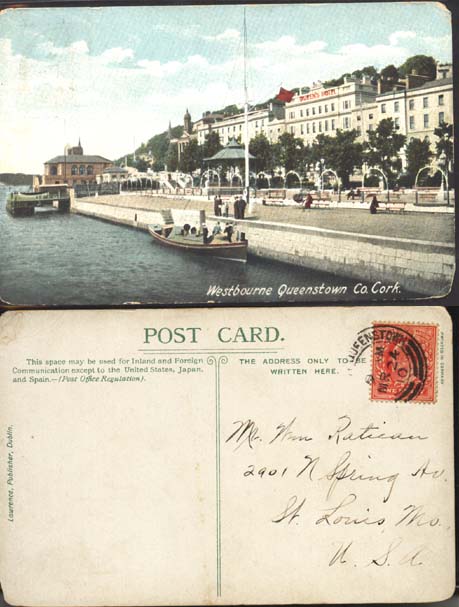 QUEEN'S HOTEL
Westbourne Queenstown Co. Cork.
POST CARD.
This space may be used for Inland and Foreign
Communication except to the United States, Japan,
and Spain.—(Post Office Regulation).
THE ADDRESS ONLY TO BE
WRITTEN HERE.
QUEENSTOWN
Lawrence, Publisher, Dublin.
Mr. Wm Ratican
2901 N Spring Av.
St. Louis, Mo.
U. S. A